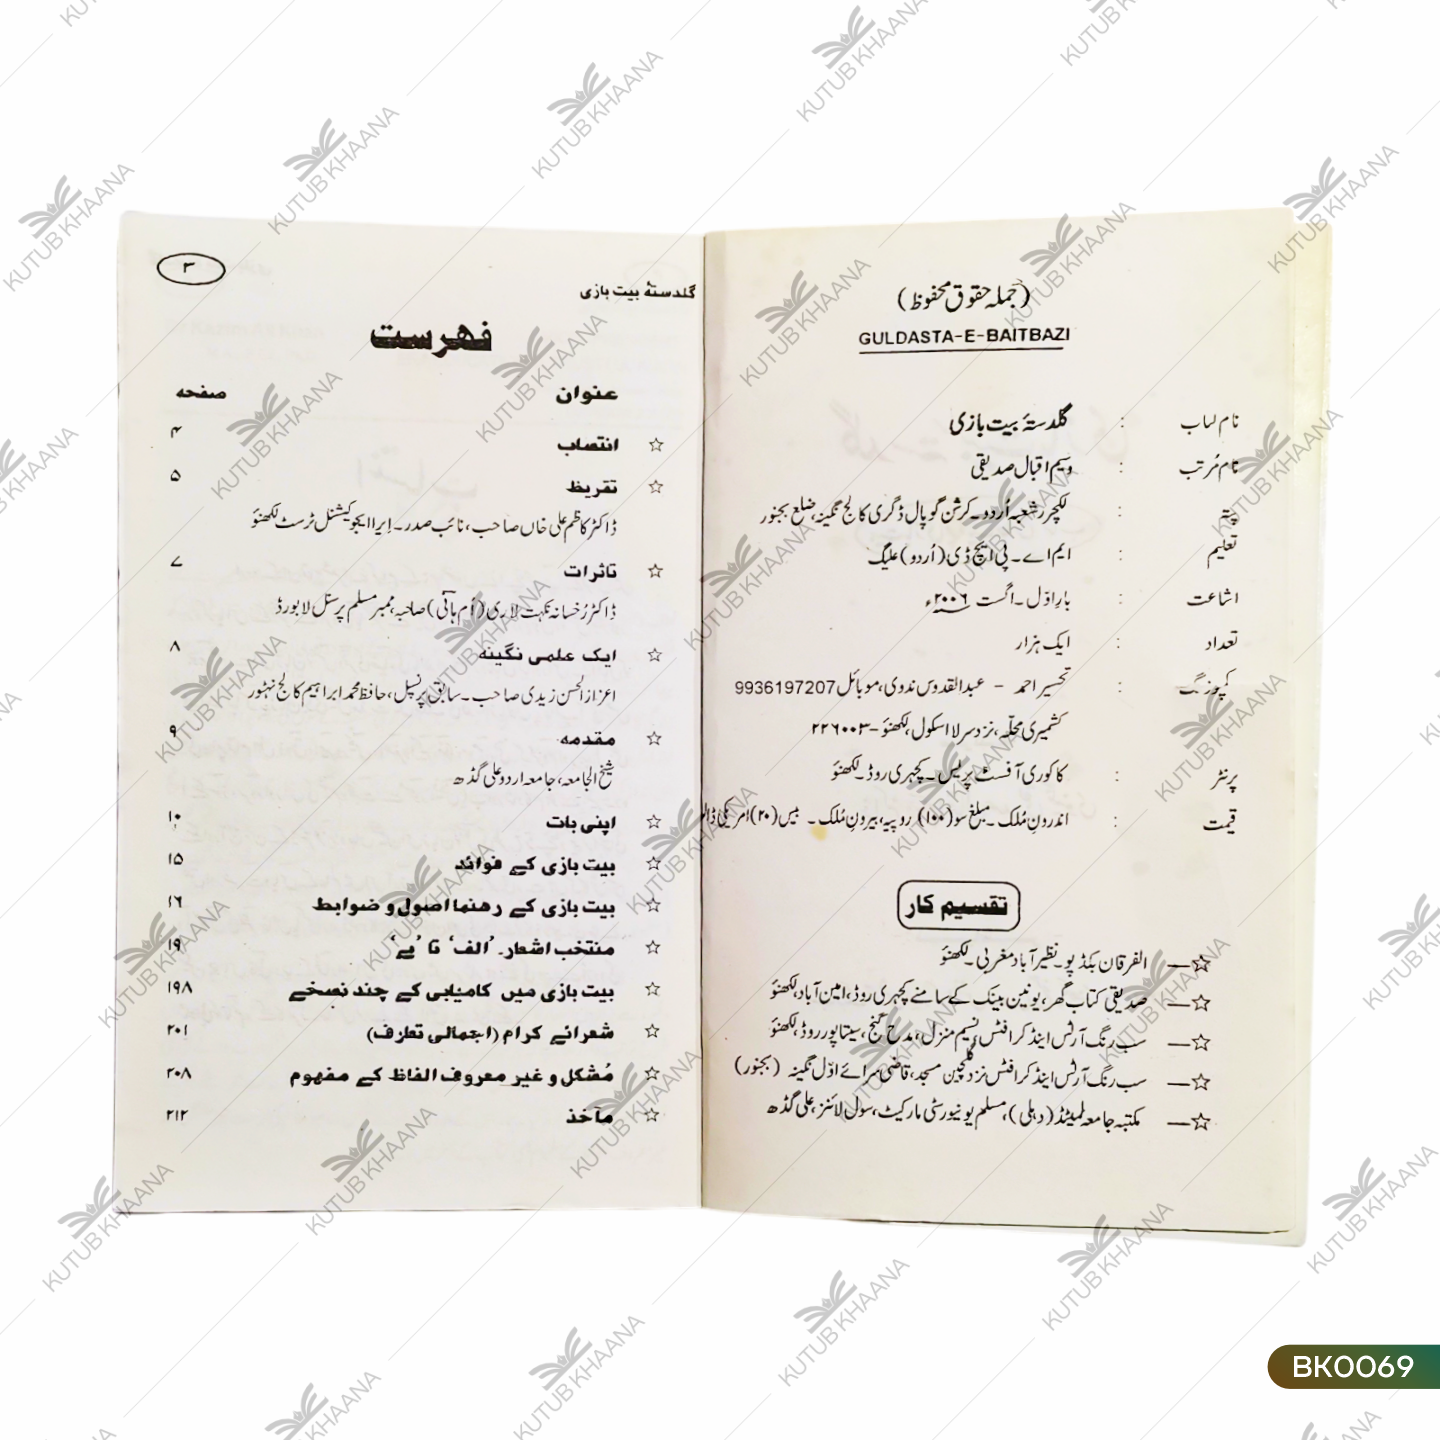 (جملہ حقوق محفوظ)
GULDASTA-E-BAITBAZI
نام کتاب : گلدستۂ بیت بازی
نام مُرتب : وسیم اقبال صدیقی
پتہ : لکچرر شعبہ اُردو۔ کرشن گوپال ڈگری کالج نگینہ، ضلع بجنور
تعلیم : ایم اے۔ پی ایچ ڈی (اُردو) علیگ
اشاعت : بارِ اوّل۔ اگست ۲۰۰۶ء
تعداد : ایک ہزار
کمپوزنگ : تحسیر احمد - عبدالقدوس ندوی، موبائل 9936197207
کشمیری محلّہ، نزد سرلا اسکول، لکھنؤ-۲۲۶۰۰۳
پرنٹر : کاکوری آفسٹ پریس۔ کچہری روڈ۔ لکھنؤ
قیمت : اندرونِ مُلک۔ مبلغ سو (۱۰۰) روپیہ، بیرونِ مُلک۔ بیس (۲۰) امریکی ڈالر
تقسیم کار
☆— الفرقان بکڈپو۔ نظیر آباد مغربی۔ لکھنؤ
☆— صدیقی کتاب گھر، یونین بینک کے سامنے کچہری روڈ، امین آباد، لکھنؤ
☆— سب رنگ آرٹس اینڈ کرافٹس، نسیم منزل، مدح گنج، سیتاپور روڈ، لکھنؤ
☆— سب رنگ آرٹس اینڈ کرافٹس نزد گلچین مسجد، قاضی سرائے اوّل نگینہ (بجنور)
☆— مکتبہ جامعہ لمیٹڈ (دہلی)، مسلم یونیورسٹی مارکیٹ، سول لائنز، علی گڈھ
گلدستۂ بیت بازی ۳
فہرست
عنوان صفحہ
☆ انتساب ۴
☆ تقریظ ۵
ڈاکٹر کاظم علی خاں صاحب، نائب صدر۔ اِیرا ایجوکیشنل ٹرسٹ لکھنؤ
☆ تاثرات ۷
ڈاکٹر رُخسانہ نکہت لاری (اُم ہانی) صاحبہ، ممبر مسلم پرسنل لا بورڈ
☆ ایک علمی نگینہ ۸
اعزاز الحسن زیدی صاحب۔ سابق پرنسپل، حافظ محمد ابراہیم کالج نہٹور
☆ مقدمہ ۹
شیخ الجامعہ، جامعہ اردو علی گڈھ
☆ اپنی بات ۱۰
☆ بیت بازی کے فوائد ۱۵
☆ بیت بازی کے رهنما اصول و ضوابط ۱۶
☆ منتخب اشعار۔ 'الف' تا 'یے' ۱۹
☆ بیت بازی میں کامیابی کے چند نسخے ۱۹۸
☆ شعرائے کرام (اجتمالی تعارف) ۲۰۱
☆ مُشکل و غیر معروف الفاظ کے مفہوم ۲۰۸
☆ مآخذ ۲۱۲
KUTUB KHAANA
BK0069